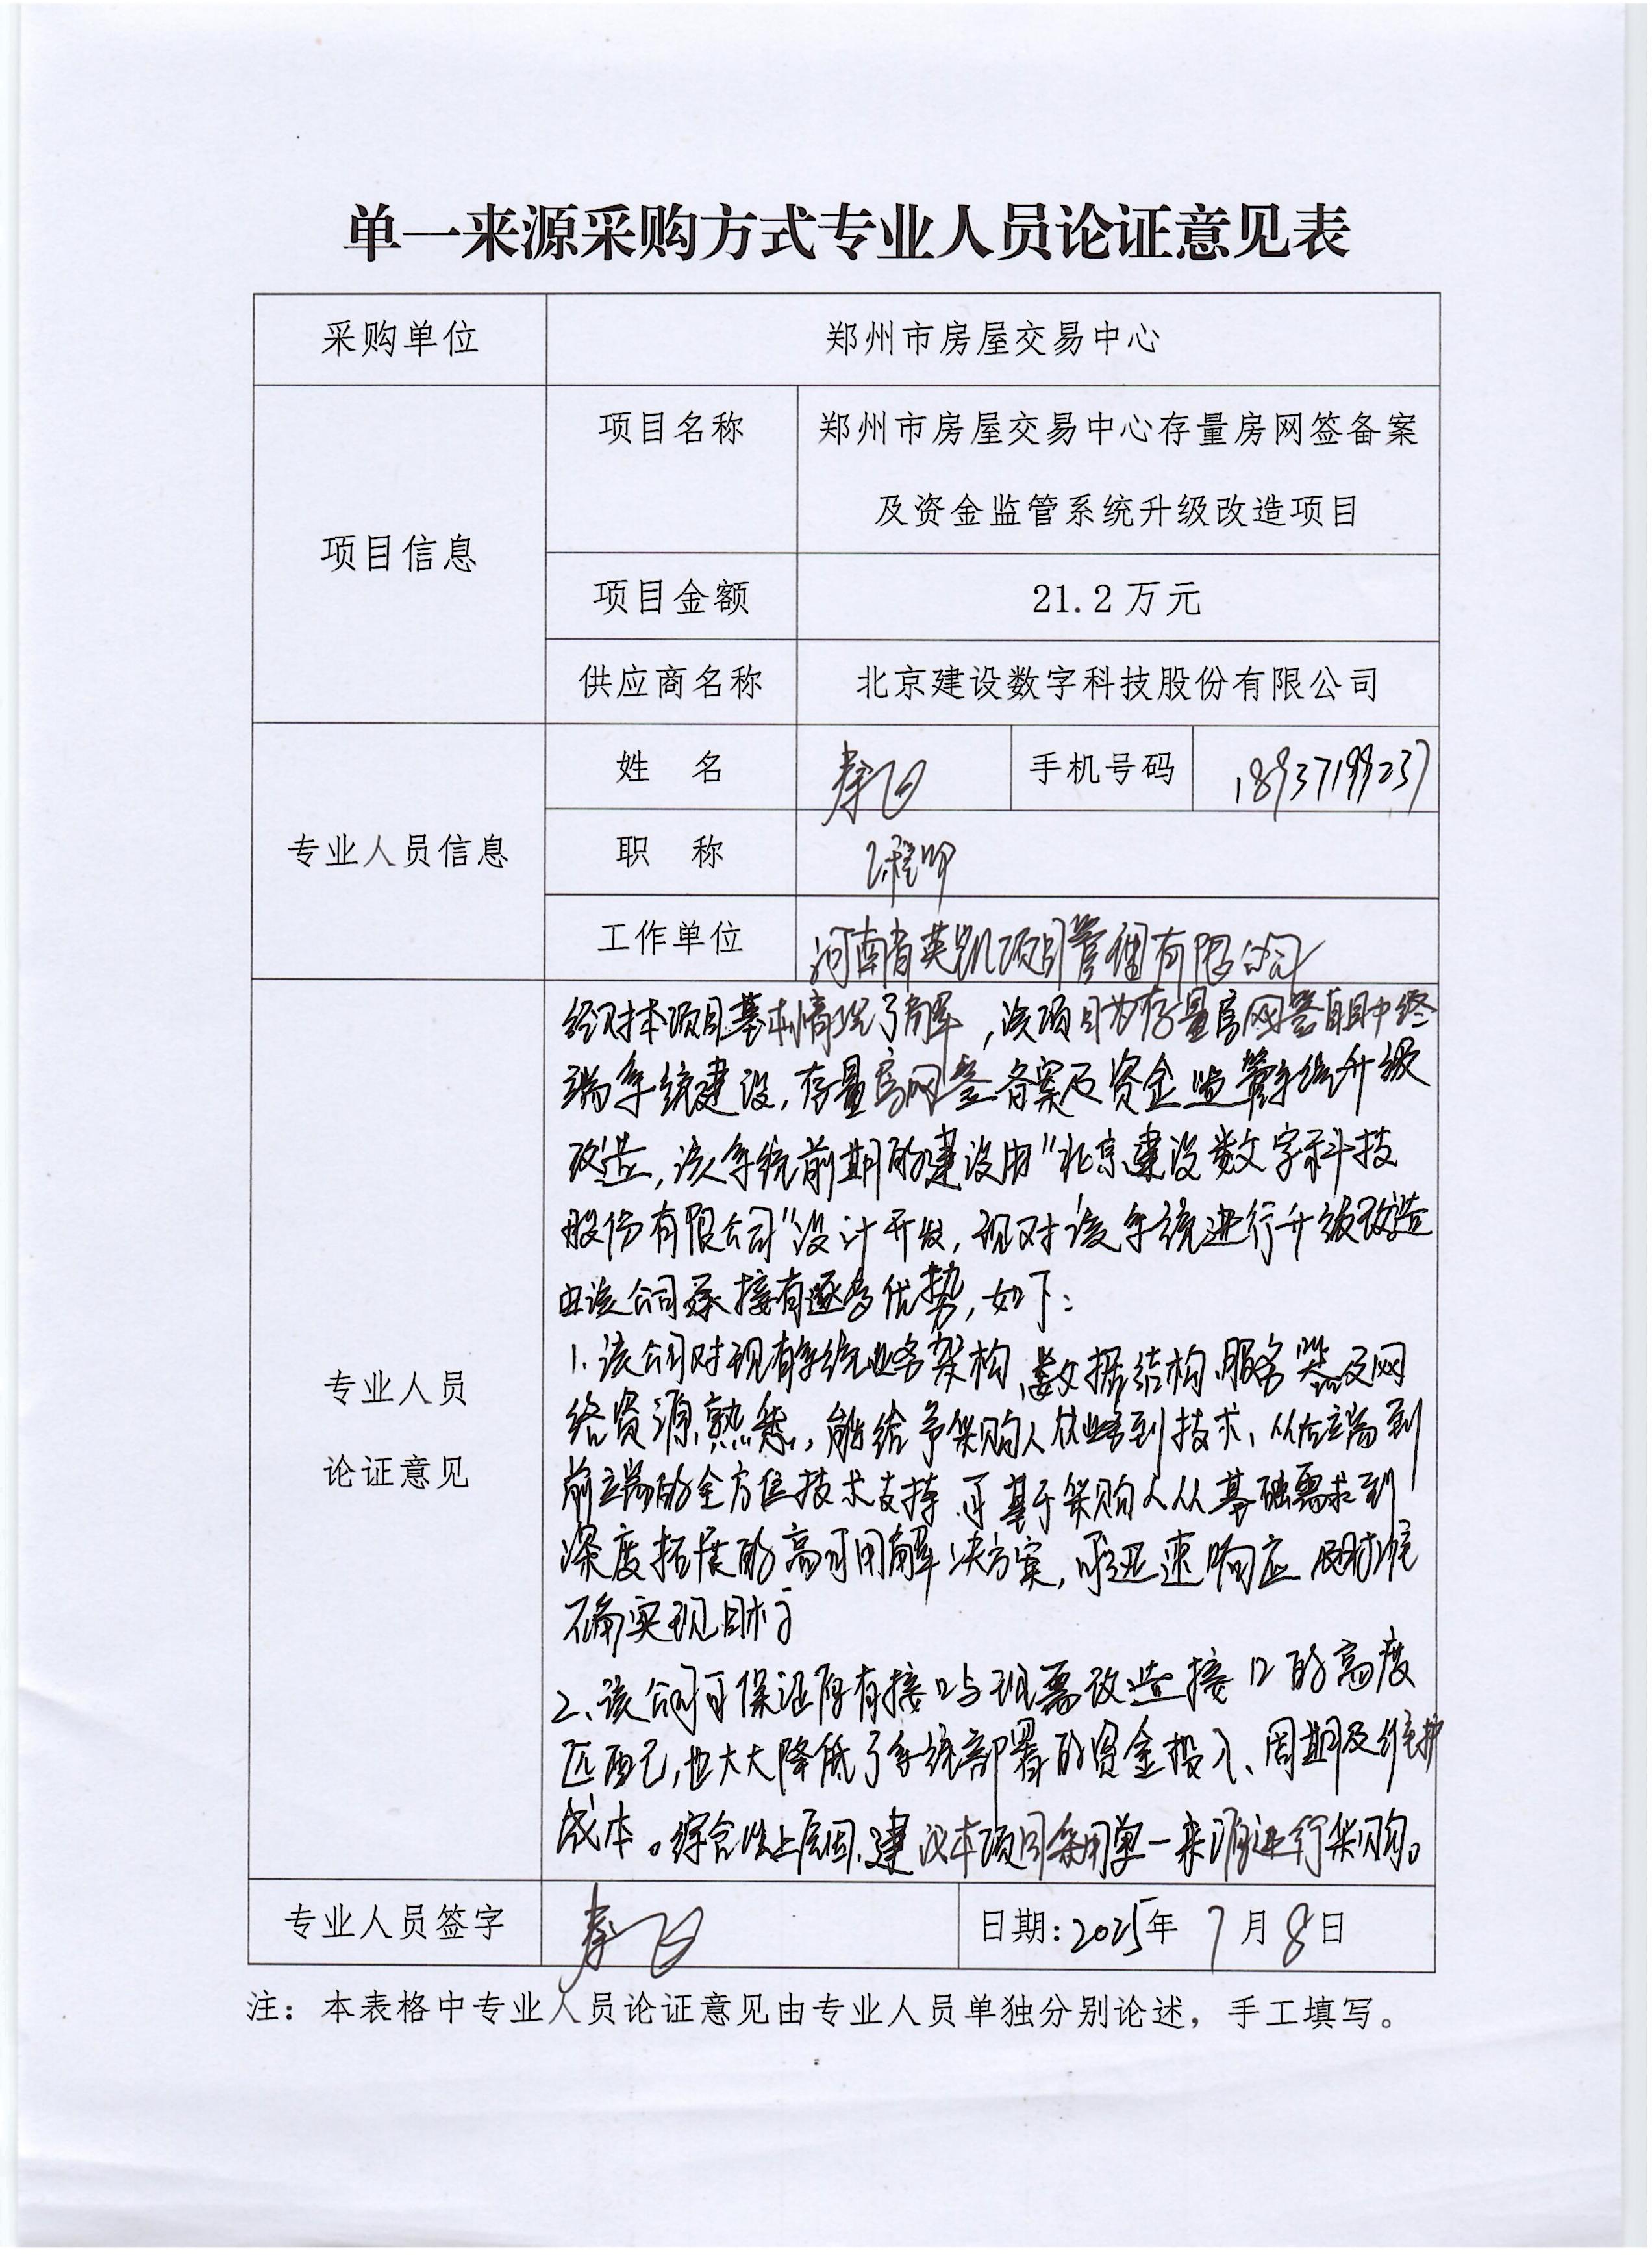 单一来源采购方式专业人员论证意见表
采购单位 郑州市房屋交易中心
项目信息
项目名称 郑州市房屋交易中心存量房网签备案
及资金监管系统升级改造项目
项目金额 21.2万元
供应商名称 北京建设数字科技股份有限公司
专业人员信息
姓 名 手机号码 18937199237
职 称 工程师
工作单位 河南省英凯项目管理有限公司
专业人员
论证意见
经对本项目基本情况了解,该项目为存量房网签自助终
端系统建设,存量房网签备案及资金监管系统升级
改造,该系统前期的建设由"北京建设数字科技
股份有限公司"设计开发,现对该系统进行升级改造
由该公司承接有诸多优势,如下:
1.该公司对现有系统业务架构、数据结构、服务器及网
络资源熟悉,能给予采购人从业务到技术、从后端到
前端的全方位技术支持,可基于采购人从基础需求到
深度拓展的高可用解决方案,可迅速响应及时准
确实现目标
2、该公司可保证原有接口与现需改造接口的高度
匹配,也大大降低了系统部署的资金投入、周期及维护
成本。综合以上原因,建议本项目采用单一来源进行采购。
专业人员签字 日期:2025年 7月 8日
注: 本表格中专业人员论证意见由专业人员单独分别论述,手工填写。